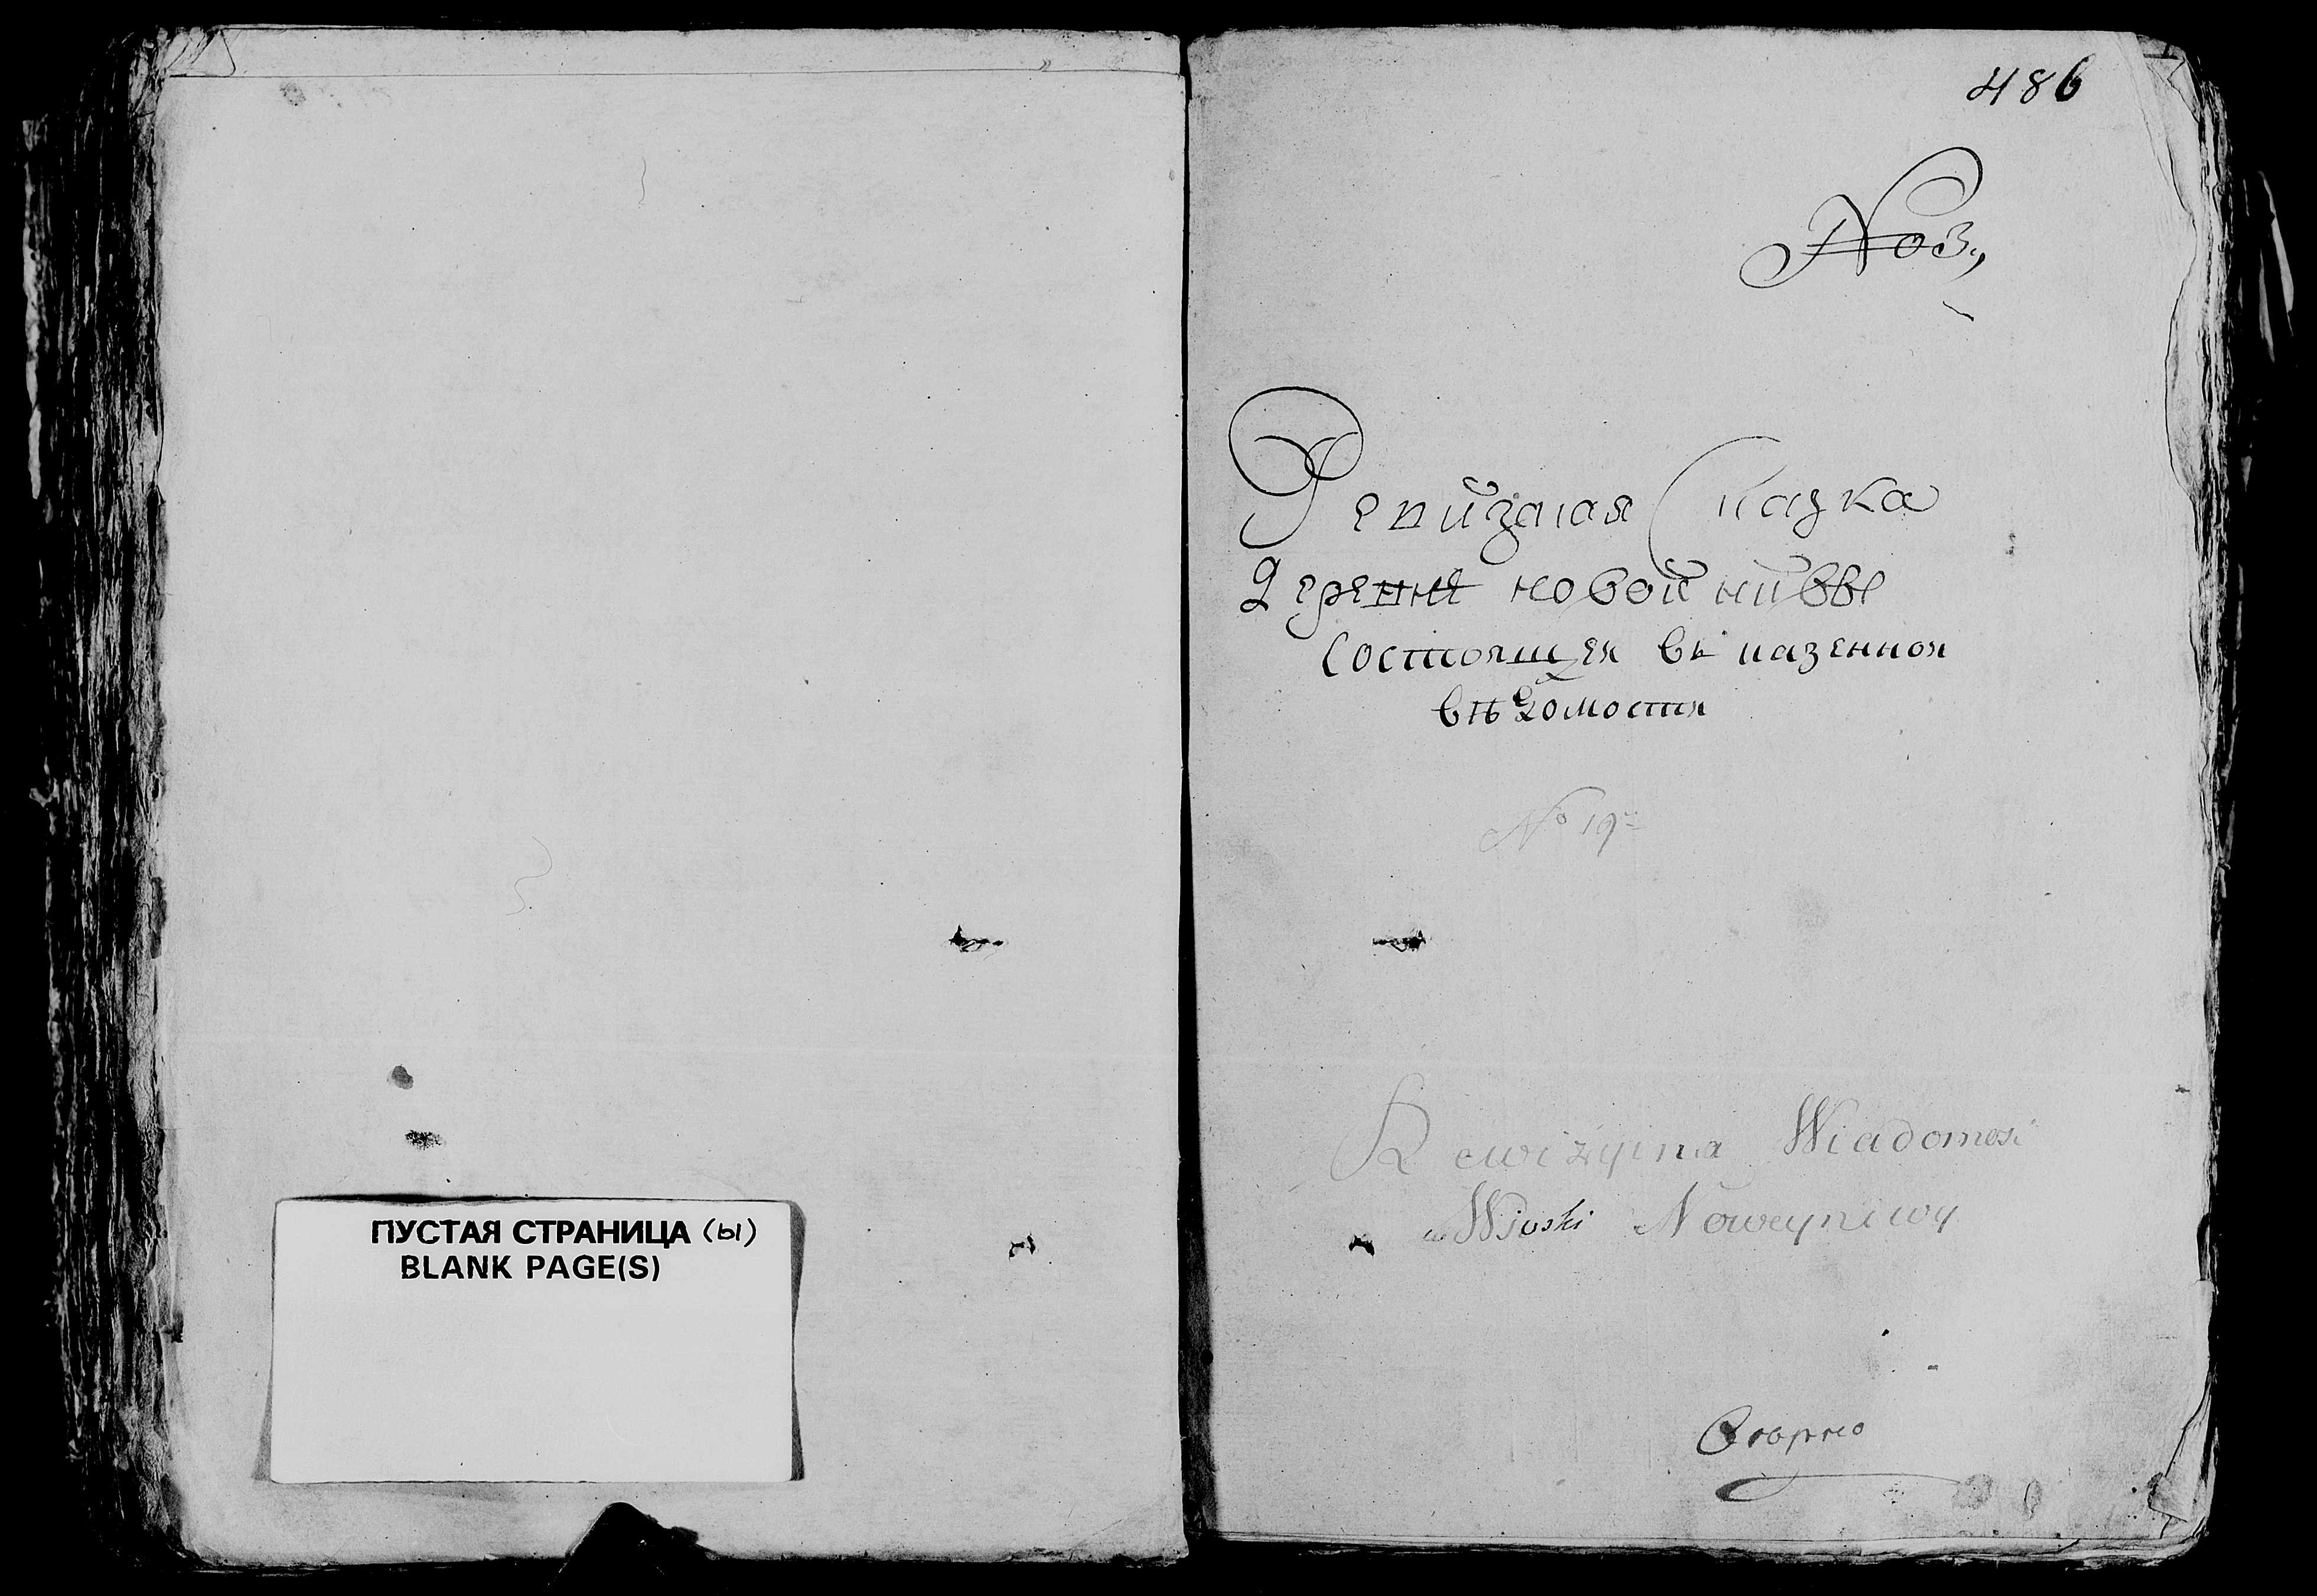 ПУСТАЯ СТРАНИЦА (ы)
BLANK PAGE(S)
486
Ревизная Сказка
Деревни новой нивве
состоящея въ казенной
вѣдомости
No 19
Rewizyina Wiadomość
Wioski Noweyniwy